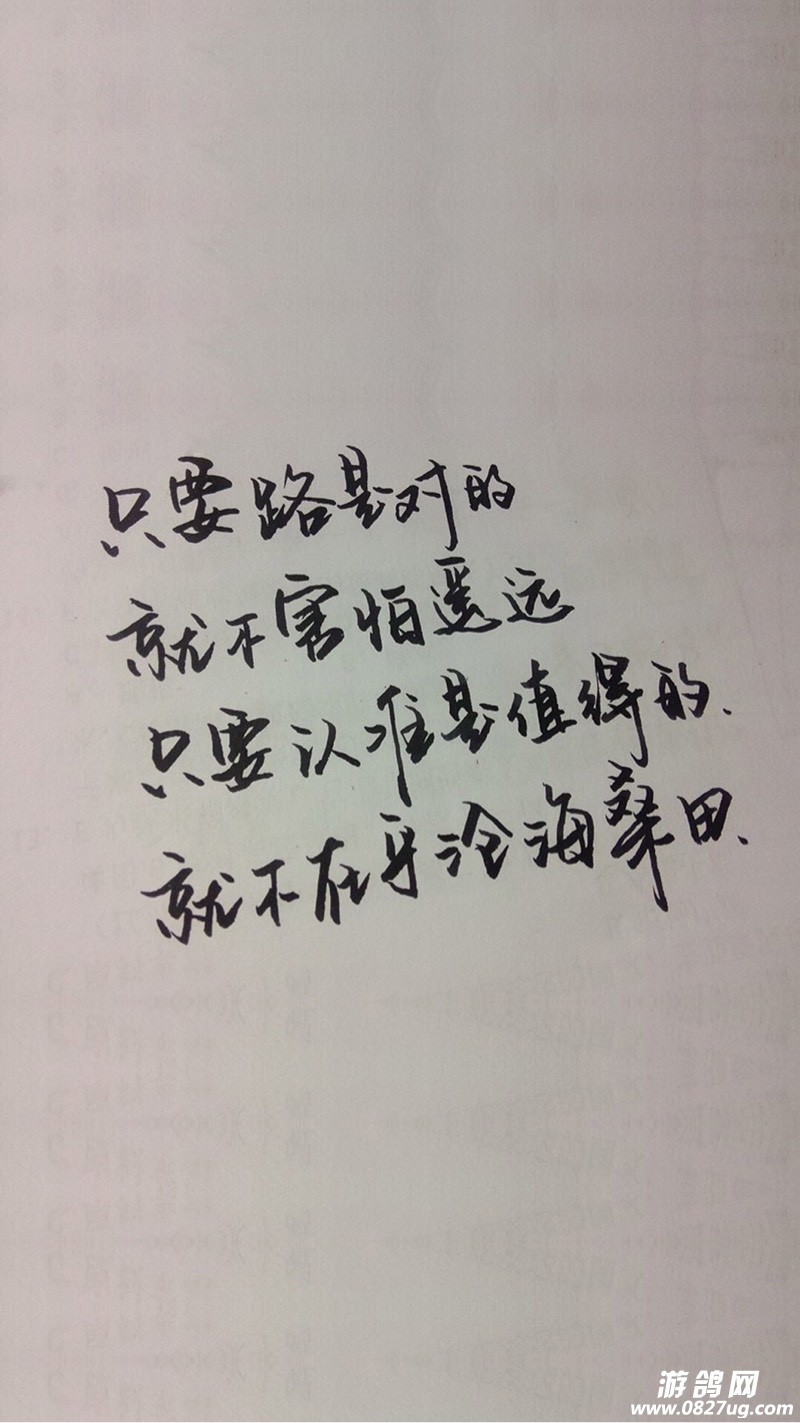 只要路是对的
就不害怕遥远
只要认准是值得的、
就不在乎沧海桑田、
游鸽网
www.0827ug.com